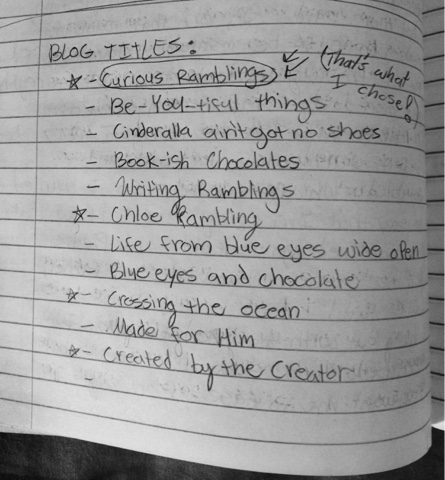 BLOG TITLES:
☆ - Curious Ramblings (That's what I chose!)
- Be-You-tiful things
- Cinderalla ain't got no shoes
- Book-ish Chocolates
- Writing Ramblings
☆ - Chloe Rambling
- Life from blue eyes wide open
- Blue eyes and chocolate
☆ - Crossing the ocean
- Made for Him
☆ - Created by the Creator
-